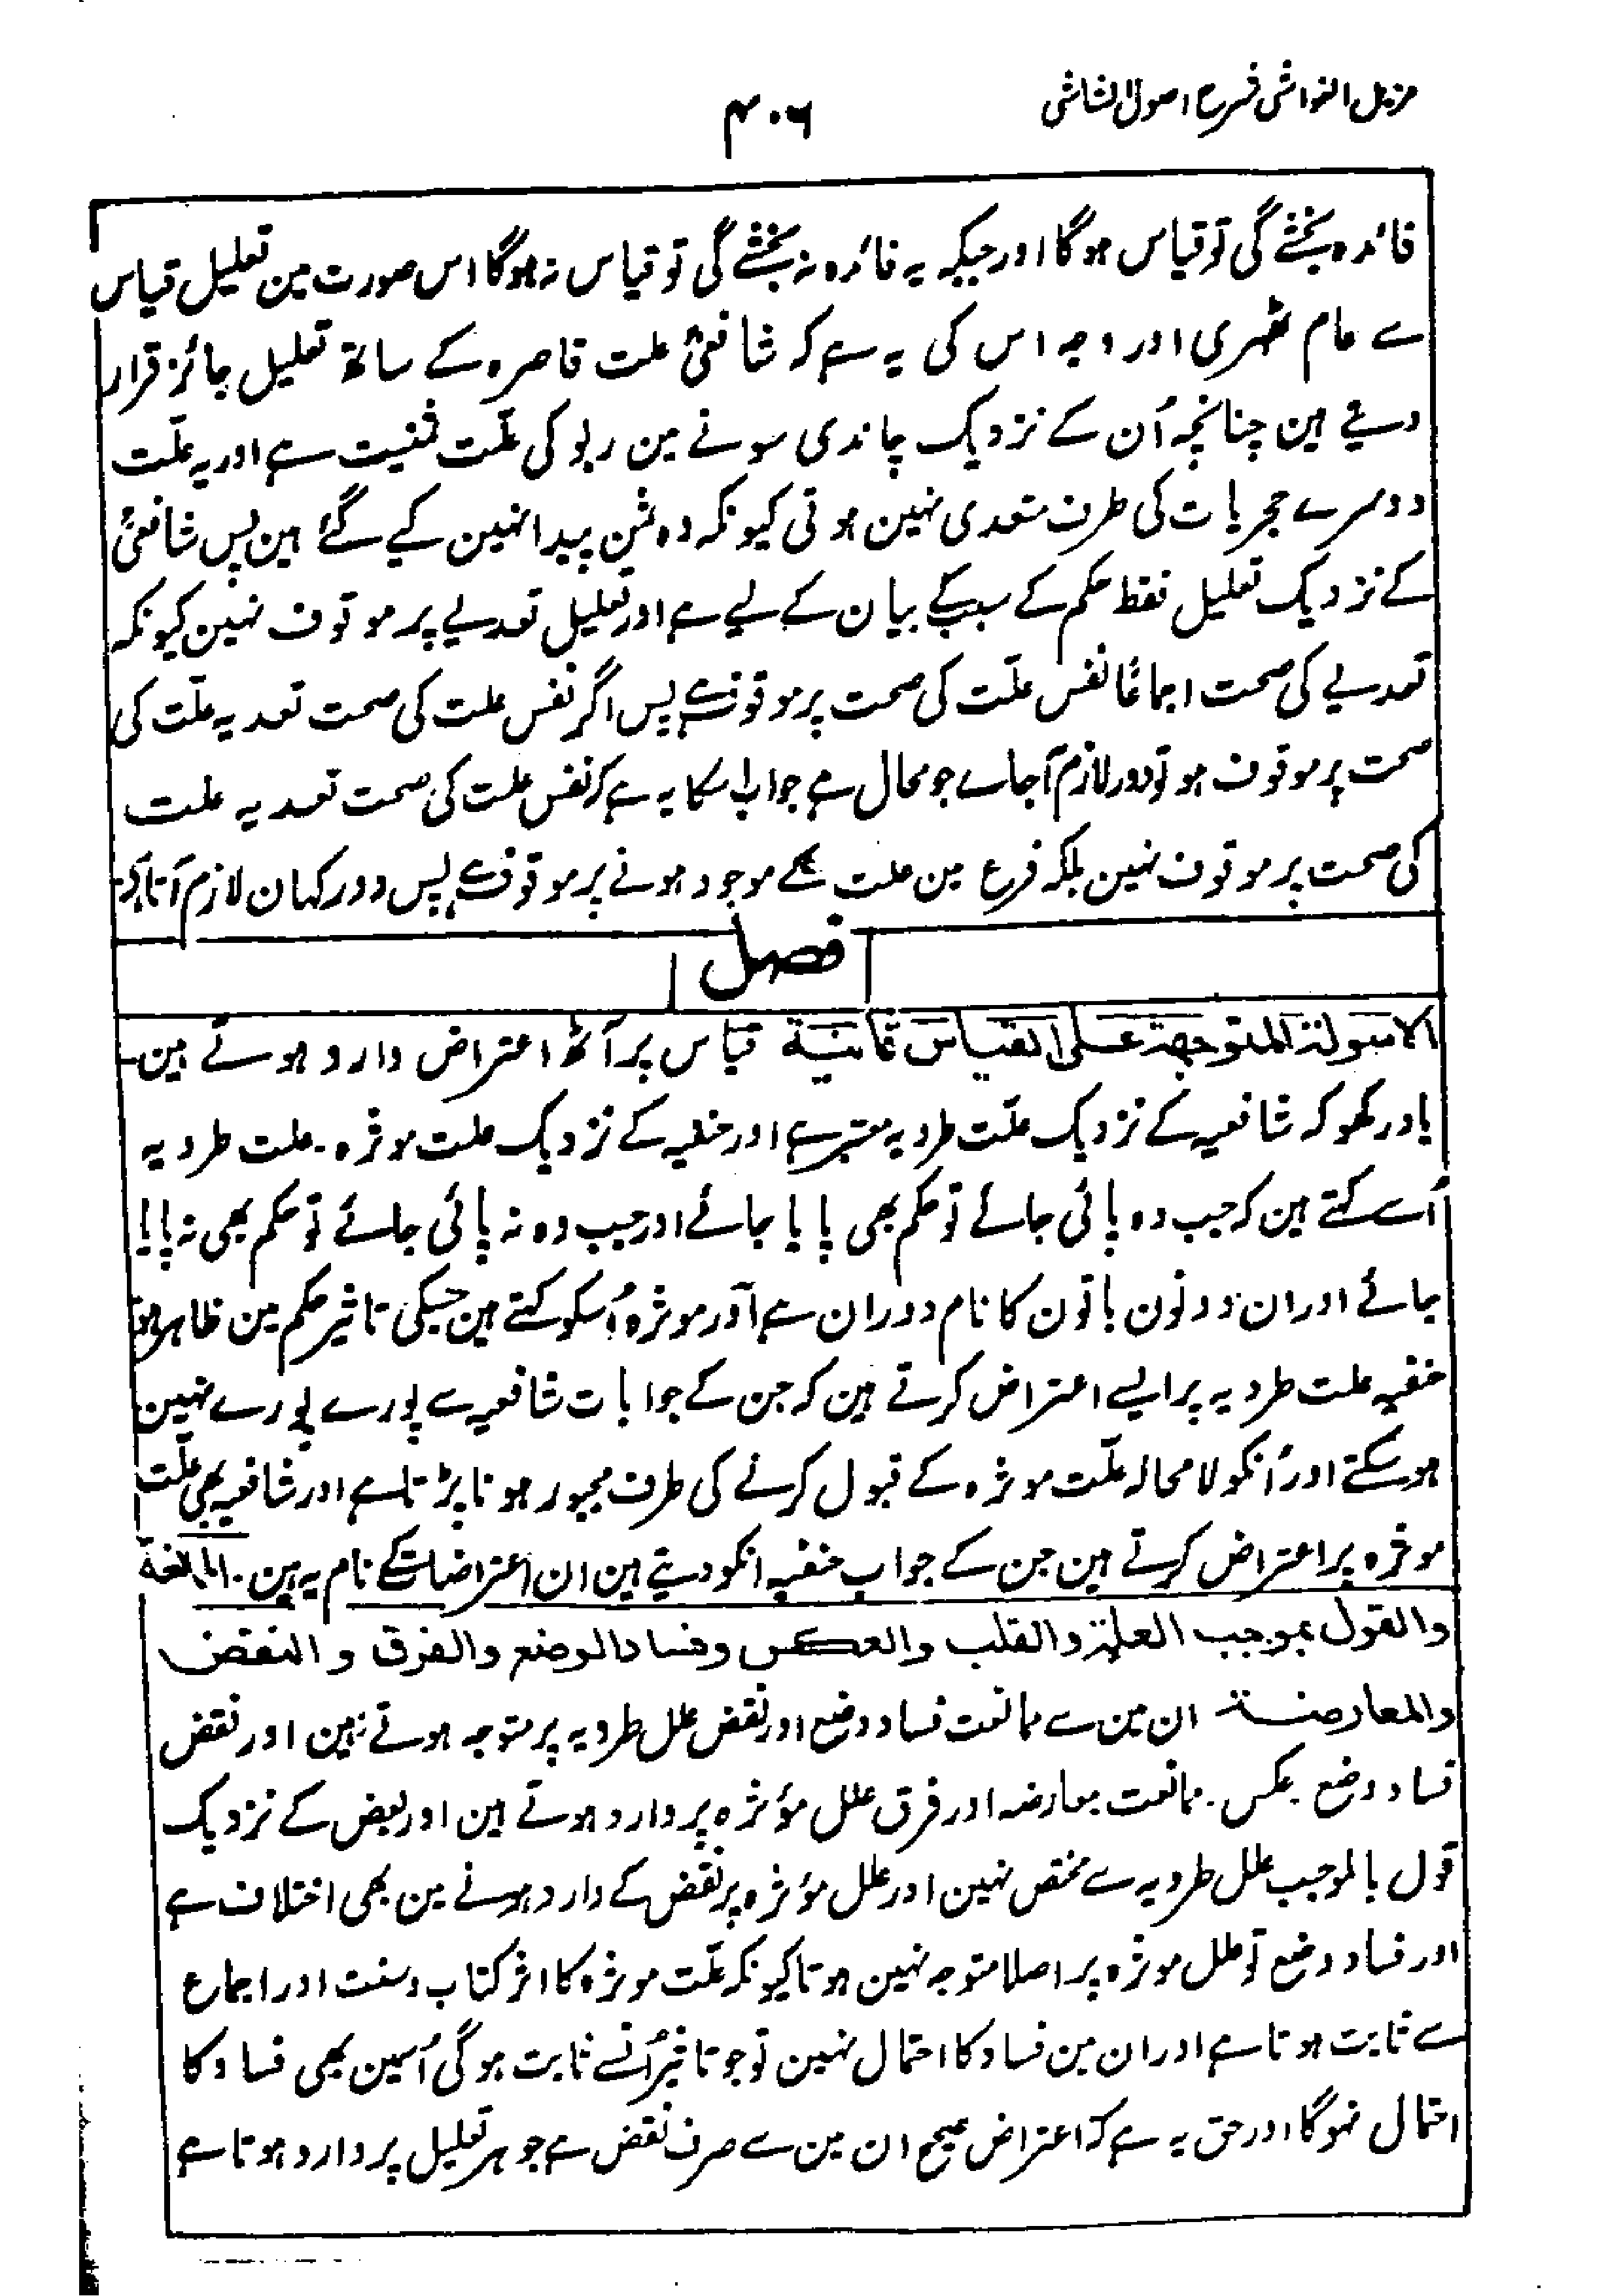 مزیل الغواشی شرح اصول الشاشی
۴۰۶
فائدہ بخشے گی تو قیاس ہوگا اور جبکہ یہ فائدہ نہ بخشے گی تو قیاس نہ ہوگا اس صورت مین تعلیل قیاس
سے عام ٹھہری اور وجہ اس کی یہ ہے کہ شافعیؒ علت قاصرہ کے ساتھ تعلیل جائز قرار
دیتے ہین چنانچہ اُن کے نزدیک چاندی سونے مین ربو کی علّت ثمنیت ہے اور یہ علّت
دوسرے حجریات کی طرف متعدی نہین ہوتی کیونکہ وہ ثمن پیدا نہین کیے گئے ہین پس شافعیؒ
کے نزدیک تعلیل فقط حکم کے سبب کے بیان کے لیے ہے اور تعلیل تعدیے پر موقوف نہین کیونکہ
تعدیے کی صحت اجماعًا نفس علّت کی صحت پر موقوف ہے پس اگر نفس علت کی صحت تعدیہ علّت کی
صحت پر موقوف ہو تو دور لازم آجاے جو محال ہے جواب اسکا یہ ہے کہ نفس علت کی صحت تعدیہ علت
کی صحت پر موقوف نہین بلکہ فرع مین علت کے موجود ہونے پر موقوف ہے پس دور کہان لازم آتا ہے
فصل
الاسولة المتوجهة على القياس ثمانية قیاس پر آٹھ اعتراض وارد ہوتے ہین
یاد رکھو کہ شافعیہ کے نزدیک علّت طردیہ معتبر ہے اور حنفیہ کے نزدیک علت موثرہ۔ علت طردیہ
اُسے کہتے ہین کہ جب وہ پائی جائے تو حکم بھی پایا جائے اور جب وہ نہ پائی جائے تو حکم بھی نہ پایا
جائے اور ان دونون باتون کا نام دوران ہے اور موثرہ اُسکو کہتے ہین جسکی تاثیر حکم مین ظاہر ہو
حنفیہ علت طردیہ پر ایسے اعتراض کرتے ہین کہ جن کے جوابات شافعیہ سے پورے پورے نہین
ہوسکتے اور اُنکو لامحالہ علّت موثرہ کے قبول کرنے کی طرف مجبور ہونا پڑتا ہے اور شافعیہ بھی علّت
موثرہ پر اعتراض کرتے ہین جن کے جواب حنفیہ انکو دیتے ہین ان اعتراضات کے نام یہ ہین۔ الممانعة
والقول بموجب العلة والقلب والعكس وفساد الوضع والفرق والنقض
والمعارضة ان مین سے ممانعت فساد وضع اور نقض علل طردیہ پر متوجہ ہوتے ہین اور نقض
فساد وضع عکس۔ ممانعت معارضہ اور فرق علل مؤثرہ پر وارد ہوتے ہین اور بعض کے نزدیک
قول بالموجب علل طردیہ سے مختص نہین اور علل مؤثرہ پر نقض کے وارد ہونے مین بھی اختلاف ہے
اور فساد وضع تو علل موثرہ پر اصلا متوجہ نہین ہوتا کیونکہ علّت موثرہ کا اثر کتاب وسنت اور اجماع
سے ثابت ہوتا ہے اور ان مین فساد کا احتمال نہین تو جو تاثیر اُنسے ثابت ہوگی اُسمین بھی فساد کا
احتمال نہوگا اور حق یہ ہے کہ اعتراض صحیح ان مین سے صرف نقض ہے جو ہر تعلیل پر وارد ہوتا ہے